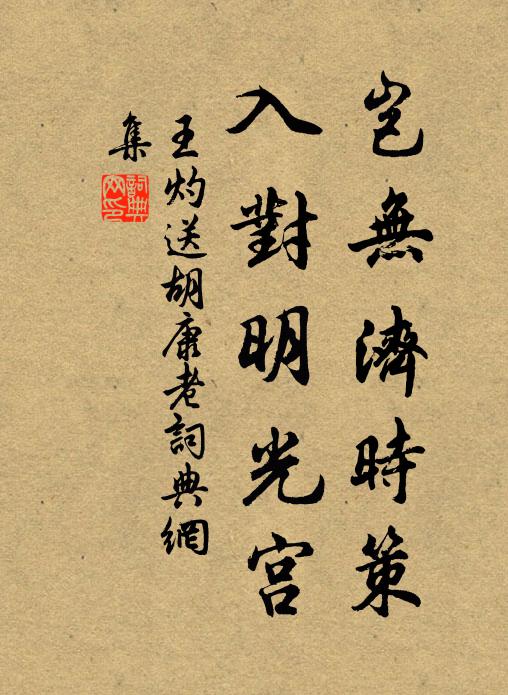 豈無濟時策
入對明光宮
王灼送胡康老詞典網
集
詞典
网印